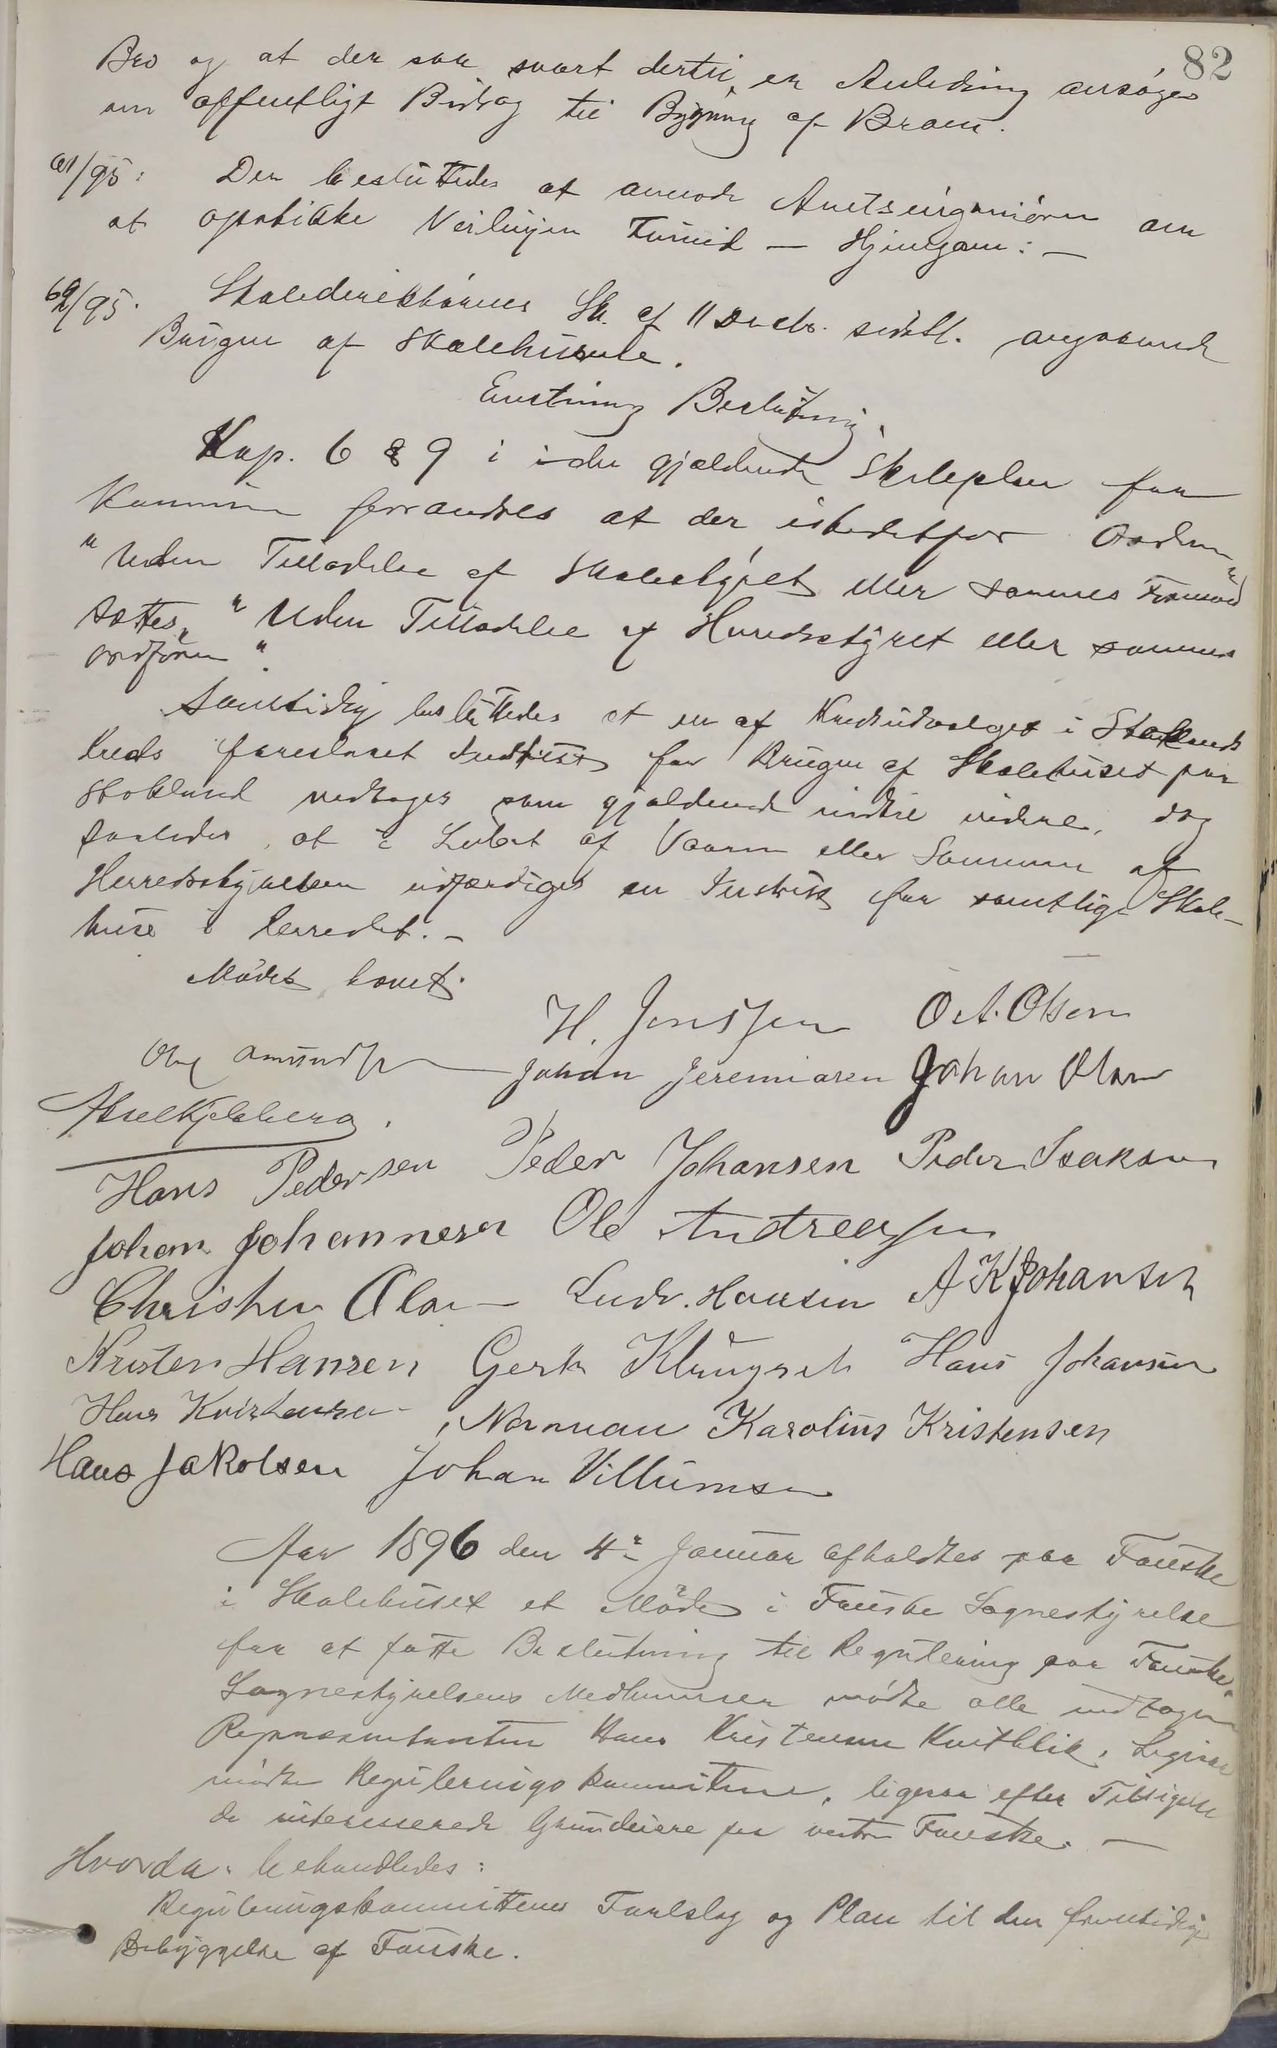 82
Bro og at der saa snart dertil er Anledning ansøges
om offentligt Bidrag til Bygning af Broen.
61/95: Der besluttedes at anmode Amtsingeniøren om
at opstikke Veilinjen Finneid — Hjemgam: —
62/95. Skoledirektørens Sk. af 11 Decbr. sidstl. angaaende
Brugen af Skolehusene.
Enstemmig Beslutning.
Kap. 6 & 9 i den gjældende Skoleplan for
Kommunen forandres at der istedetfor Ordene
"Uden Tilladelse af Skolestyret eller sammes Formand"
sættes "Uden Tilladelse af Herredsstyret eller sammes
Ordfører".
Samtidig besluttedes at en af Kredsudvalget i Stoklands
kreds foreslaaet Instrux for Brugen af Skolehuset paa
Stokland vedtages som gjældende indtil videre, dog
saaledes, at i Løbet af Vaaren eller Sommeren af
Herredsstyrelsen udfærdiges en Instrux for samtlige Skole-
huse i herredet. —
Mødet hævet.
H. Jenssen O. A. Olsen
Ole Amundsen Johan Jeremiasen Johan Olsen
Axel Kjelsberg.
Hans Pedersen Peder Johansen Peder Isaksen
Johan Johannesen Ole Andreassen
Christen Olsen Ludv. Hansen A K Johansen
Kristen Hansen Gerh Klungseth Hans Johansen
Hans Kristensen, Norman Karolius Kristensen
Hans Jakobsen Johan Villumsen
Aar 1896 den 4de Januar afholdtes paa Fauske
i Skolehuset et Møde i Fauske Sognestyrelse
for at fatte Beslutning til Regulering paa Fauske.
Sognestyrelsens Medlemmer mødte alle undtagen
Repræsentanten Hans Kristensen Kvitblik. Ligesaa
mødte Reguleringskommiteen, ligesaa efter Tilsigelse
de interesserede Grundeiere paa vestre Fauske. —
Hvorda behandledes:
Reguleringskommitteens Forslag og Plan til den fremtidige
Bebyggelse af Fauske.